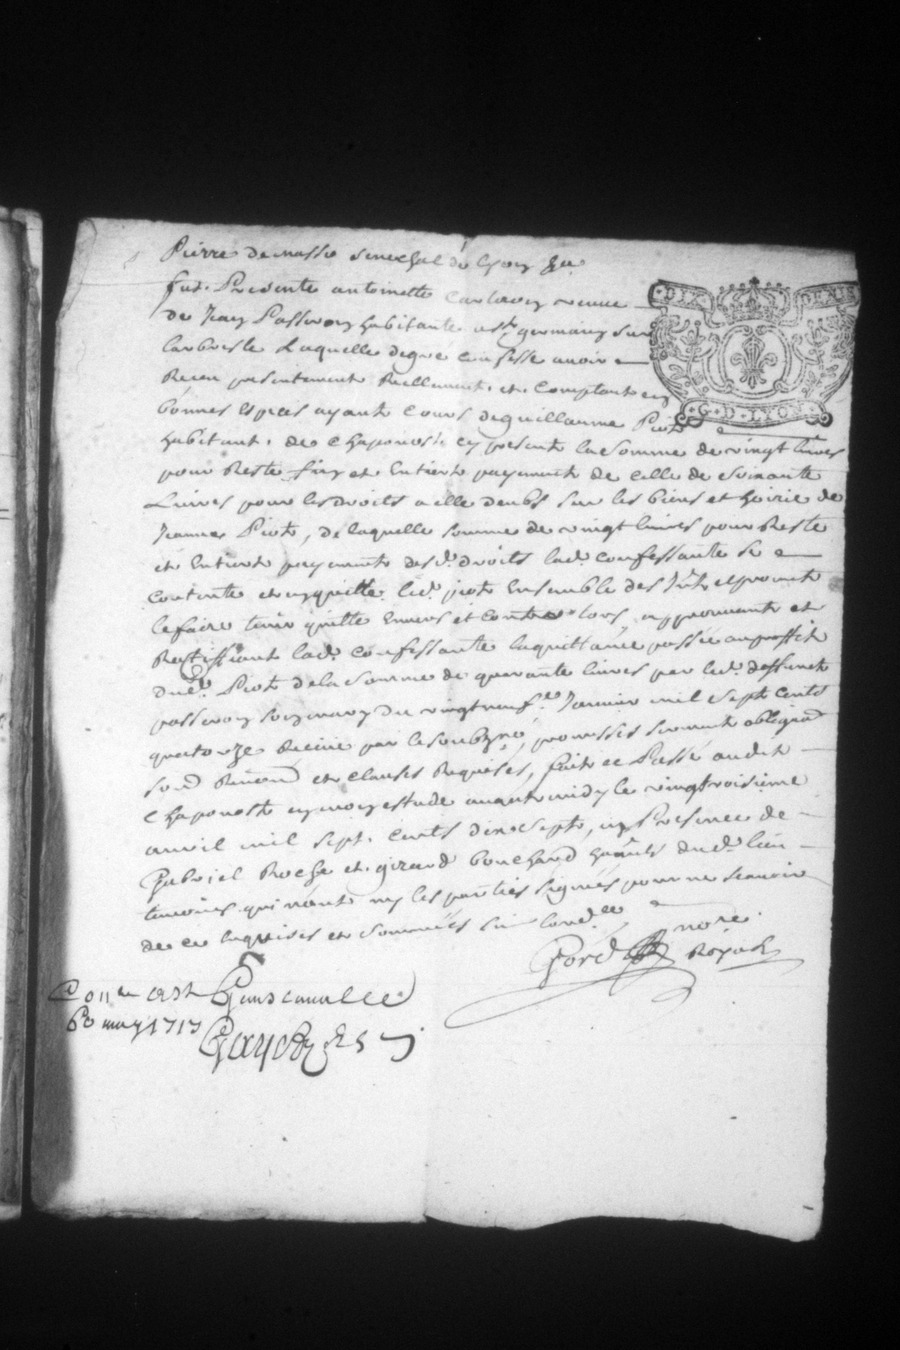 Pierre de masso senechal de lyon &a
fut Presente antoinette veuve
de Jean Passeron habitante a st germain sur
larbresle Laquelle degre confesse avoir
Receu presentement Reellement et Comptant en
bonnes especes ayant Cours de guillaume Piot
habitant de Chaponost cy present la somme de vingt livres
pour Reste fin et Entiere payement de Celle de Soixante
Livres pour les droits a elle deubs sur les biens et hoirie de
Jeanne Piot, de laquelle somme de vingt livres pour Reste
et Entiere payement desd. droits lad. confessante se
contente et en quitte led. piot Ensemble des Jnts et promet
le faire tenir quitte Envers et Contre tous, approuvant et
Ratiffiant lad. confessante la quittance passée au proffit
dud. Piot de la Somme de quarante livres par led. deffunct
passeron son mary du vingt neuf.e Janvier mil Sept Cents
quatorze Receue par le soubzné, promesses serment obligaon
soumd Renond et Clauses Requises, fait et Passé audit
Chaponost en mon estude avant midy le vingtroisieme
avril mil sept Cents dix Sept, en Presence de
Gabriel Roche et girard bouchard habts dud. lieu
temoins qui n'ont ny les parties signés pour ne scavoir
de ce enquises et sommées
nore
Royal
DIX DENIE
G. D. LYON
may 1717